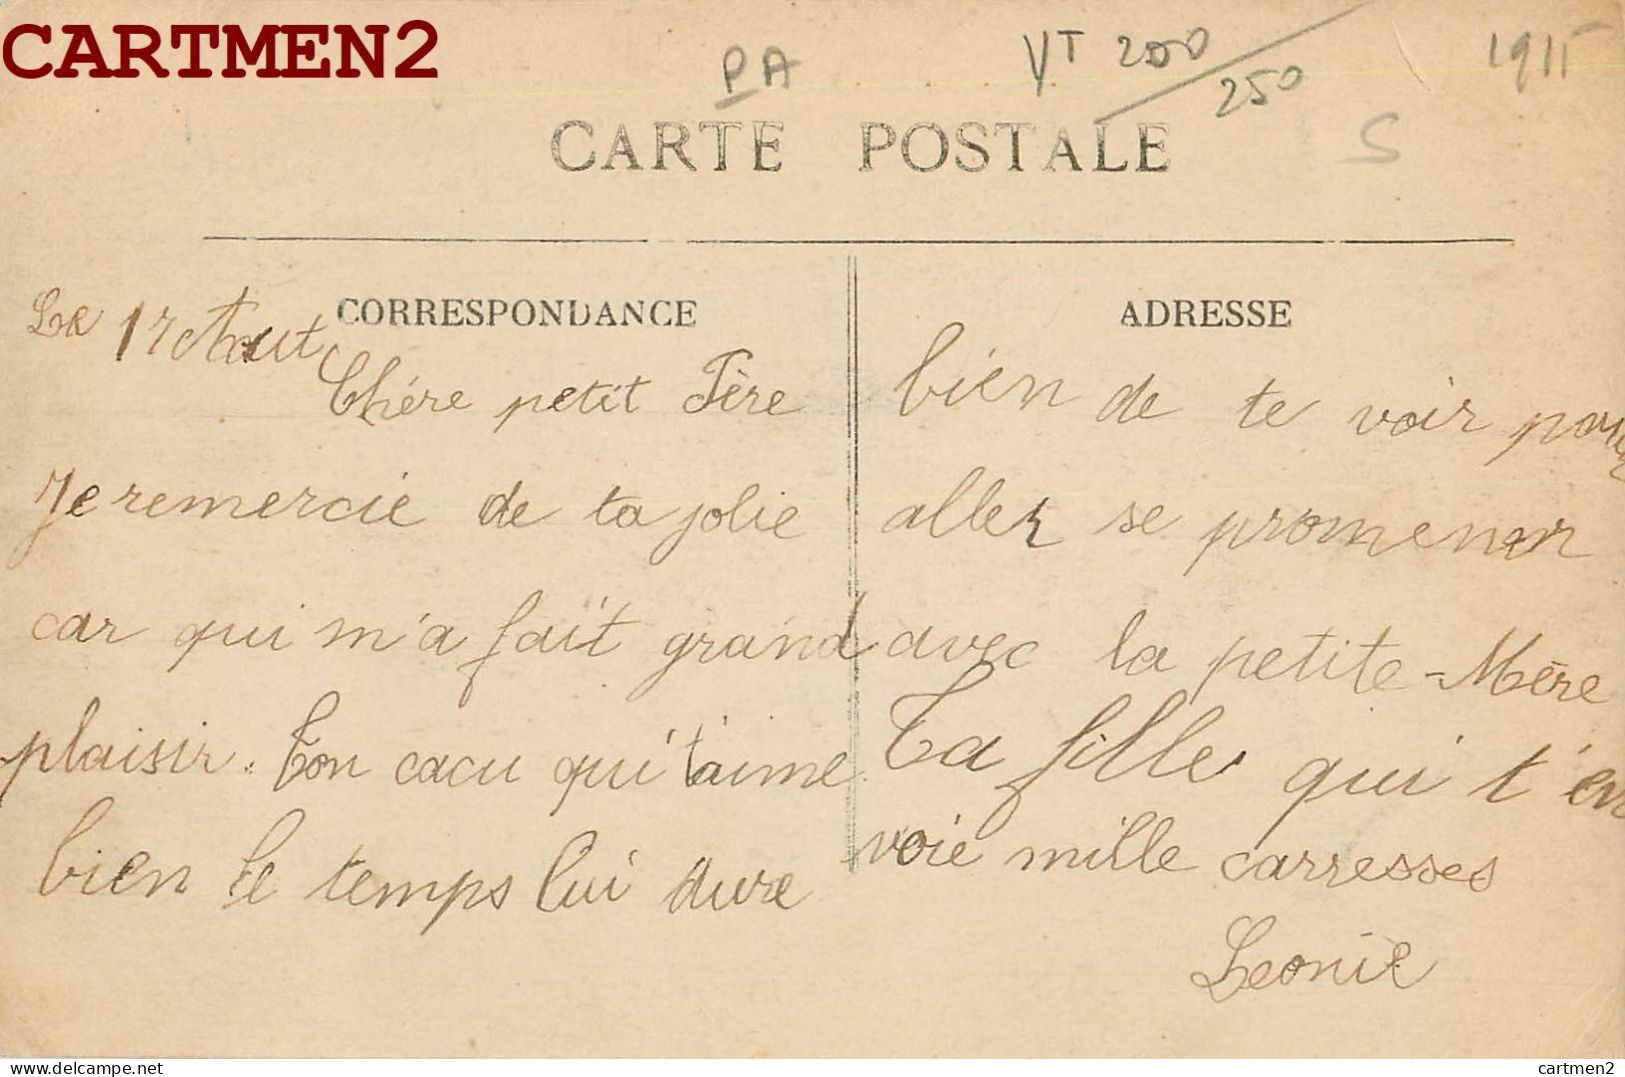 CARTMEN2
PA
VT 200
250
1915
S
CARTE POSTALE
CORRESPONDANCE
Le 17 Aout
Chére petit Père
Je remercie de ta jolie
car qui m'a fait grand
plaisir. Ton cacu qui t'aime
bien le temps lui dure
ADRESSE
bien de te voir pour
aller se promener
avec la petite-Mère
Ta fille qui t'en
voie mille carresses
Leonie
delcampe.net
cartmen2